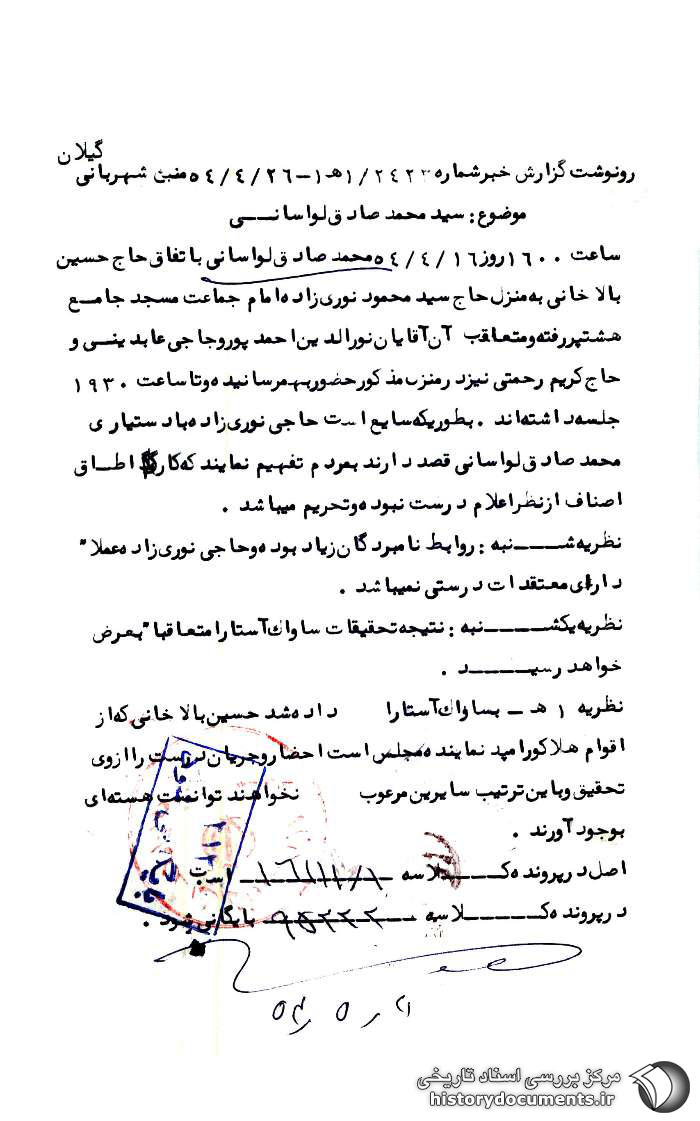 گیلان
رونوشت گزارش خبر شماره ۲۴۲۳/ ۱هـ۱ – ۵۴/۴/۲۶ منبع شهربانی
موضوع : سید محمد صادق لواسانــی
ساعت ۱۶۰۰ روز ۵۴/۴/۱۶ محمد صادق لواسانی باتفاق حاج حسین
بالاخانی به منزل حاج سید محمود نوری زاده امام جماعت مسجد جامع
هشتپر رفته و متعاقب آن آقایان نورالدین احمدپور و حاجی عابدینــی و
حاج کریم رحمتی نیز در منزل مذکور حضور بهم رسانیده و تا ساعت ۱۹۳۰
جلسه داشته‌اند . بطوریکه سایع است حاجی نوری زاده با دستیاری
محمد صادق لواسانی قصد دارند بمردم تفهیم نمایند که کار اطــاق
اصناف از نظر اعلام درست نبوده و تحریم میباشد .
نظریه شـــنبه : روابط نامبردگان زیاد بوده و حاجی نوری زاده عملا"
دارای معتقدات درستی نمیباشد .
نظریه یکشــــنبه : نتیجه تحقیقات ساواک آستارا متعاقبا" بعرض
خواهد رسیــــد .
نظریه ۱ هـ ـ بساواک آستارا داده شد حسین بالاخانی که از
اقوام هلاکو رامبد نماینده مجلس است احضار و جریان را از وی
تحقیق و باین ترتیب سایرین مرعوب نخواهند توانست هسته‌ای
بوجود آورند .
اصل در پرونده کـــلاسه است
در پرونده کـــلاسه ۹۵۲۲۲ بایگانی شود .
مرکز بررسی اسناد تاریخی
historydocuments.ir